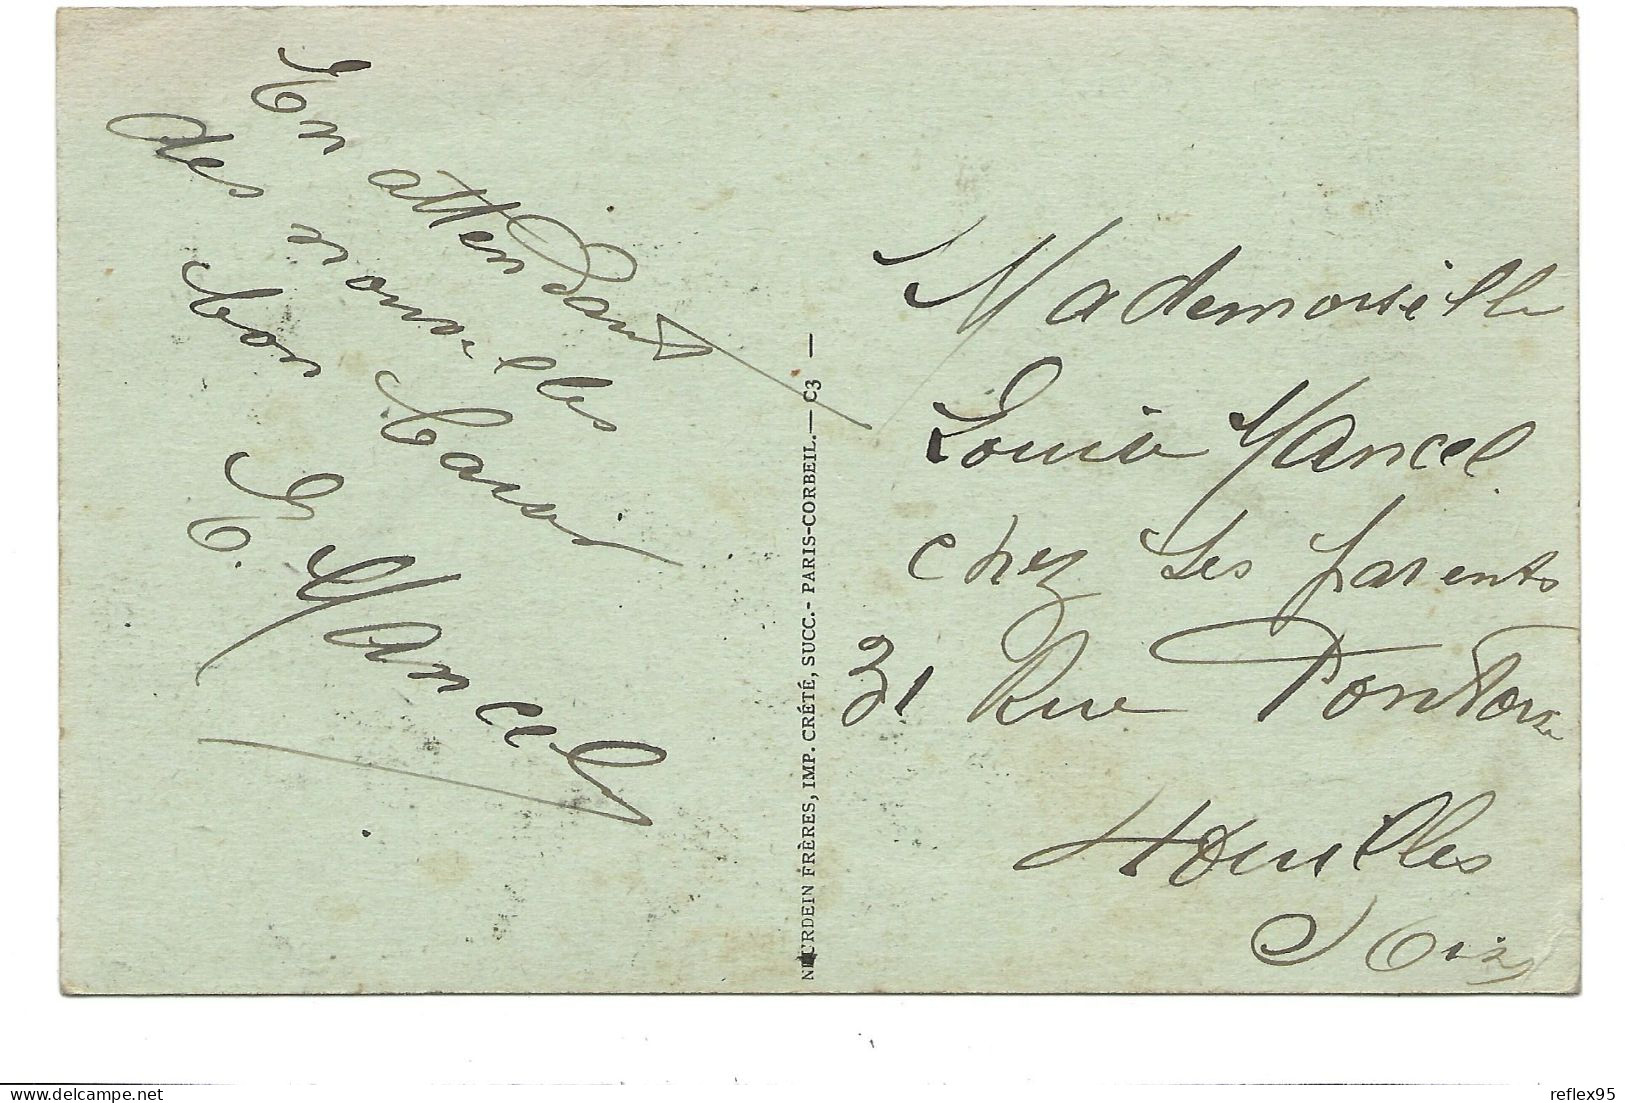 En attendant
des nouvelles
bon baiser
E. Mancel
NEURDEIN FRÈRES, IMP. CRÉTÉ, SUCC.- PARIS-CORBEIL.— C3 —
Mademoiselle
Louise Mancel
chez ses parents
31 Rue Pontoise
Houilles
S Oise
reflex95